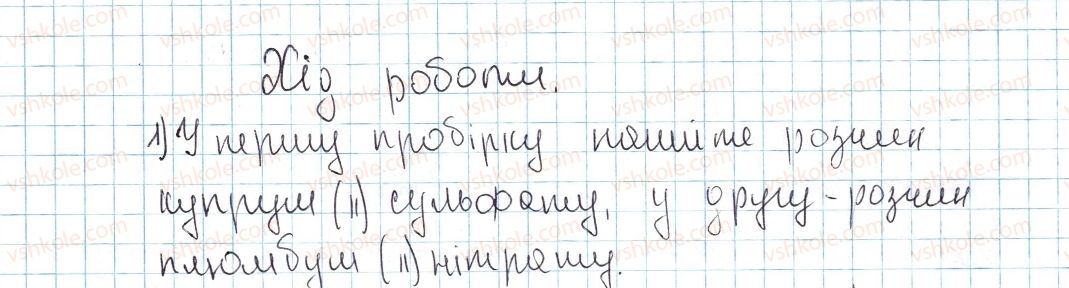 Хід роботи.
1) У першу пробірку налийте розчин
купрум (ІІ) сульфату, у другу - розчин
плюмбум (ІІ) нітрату.